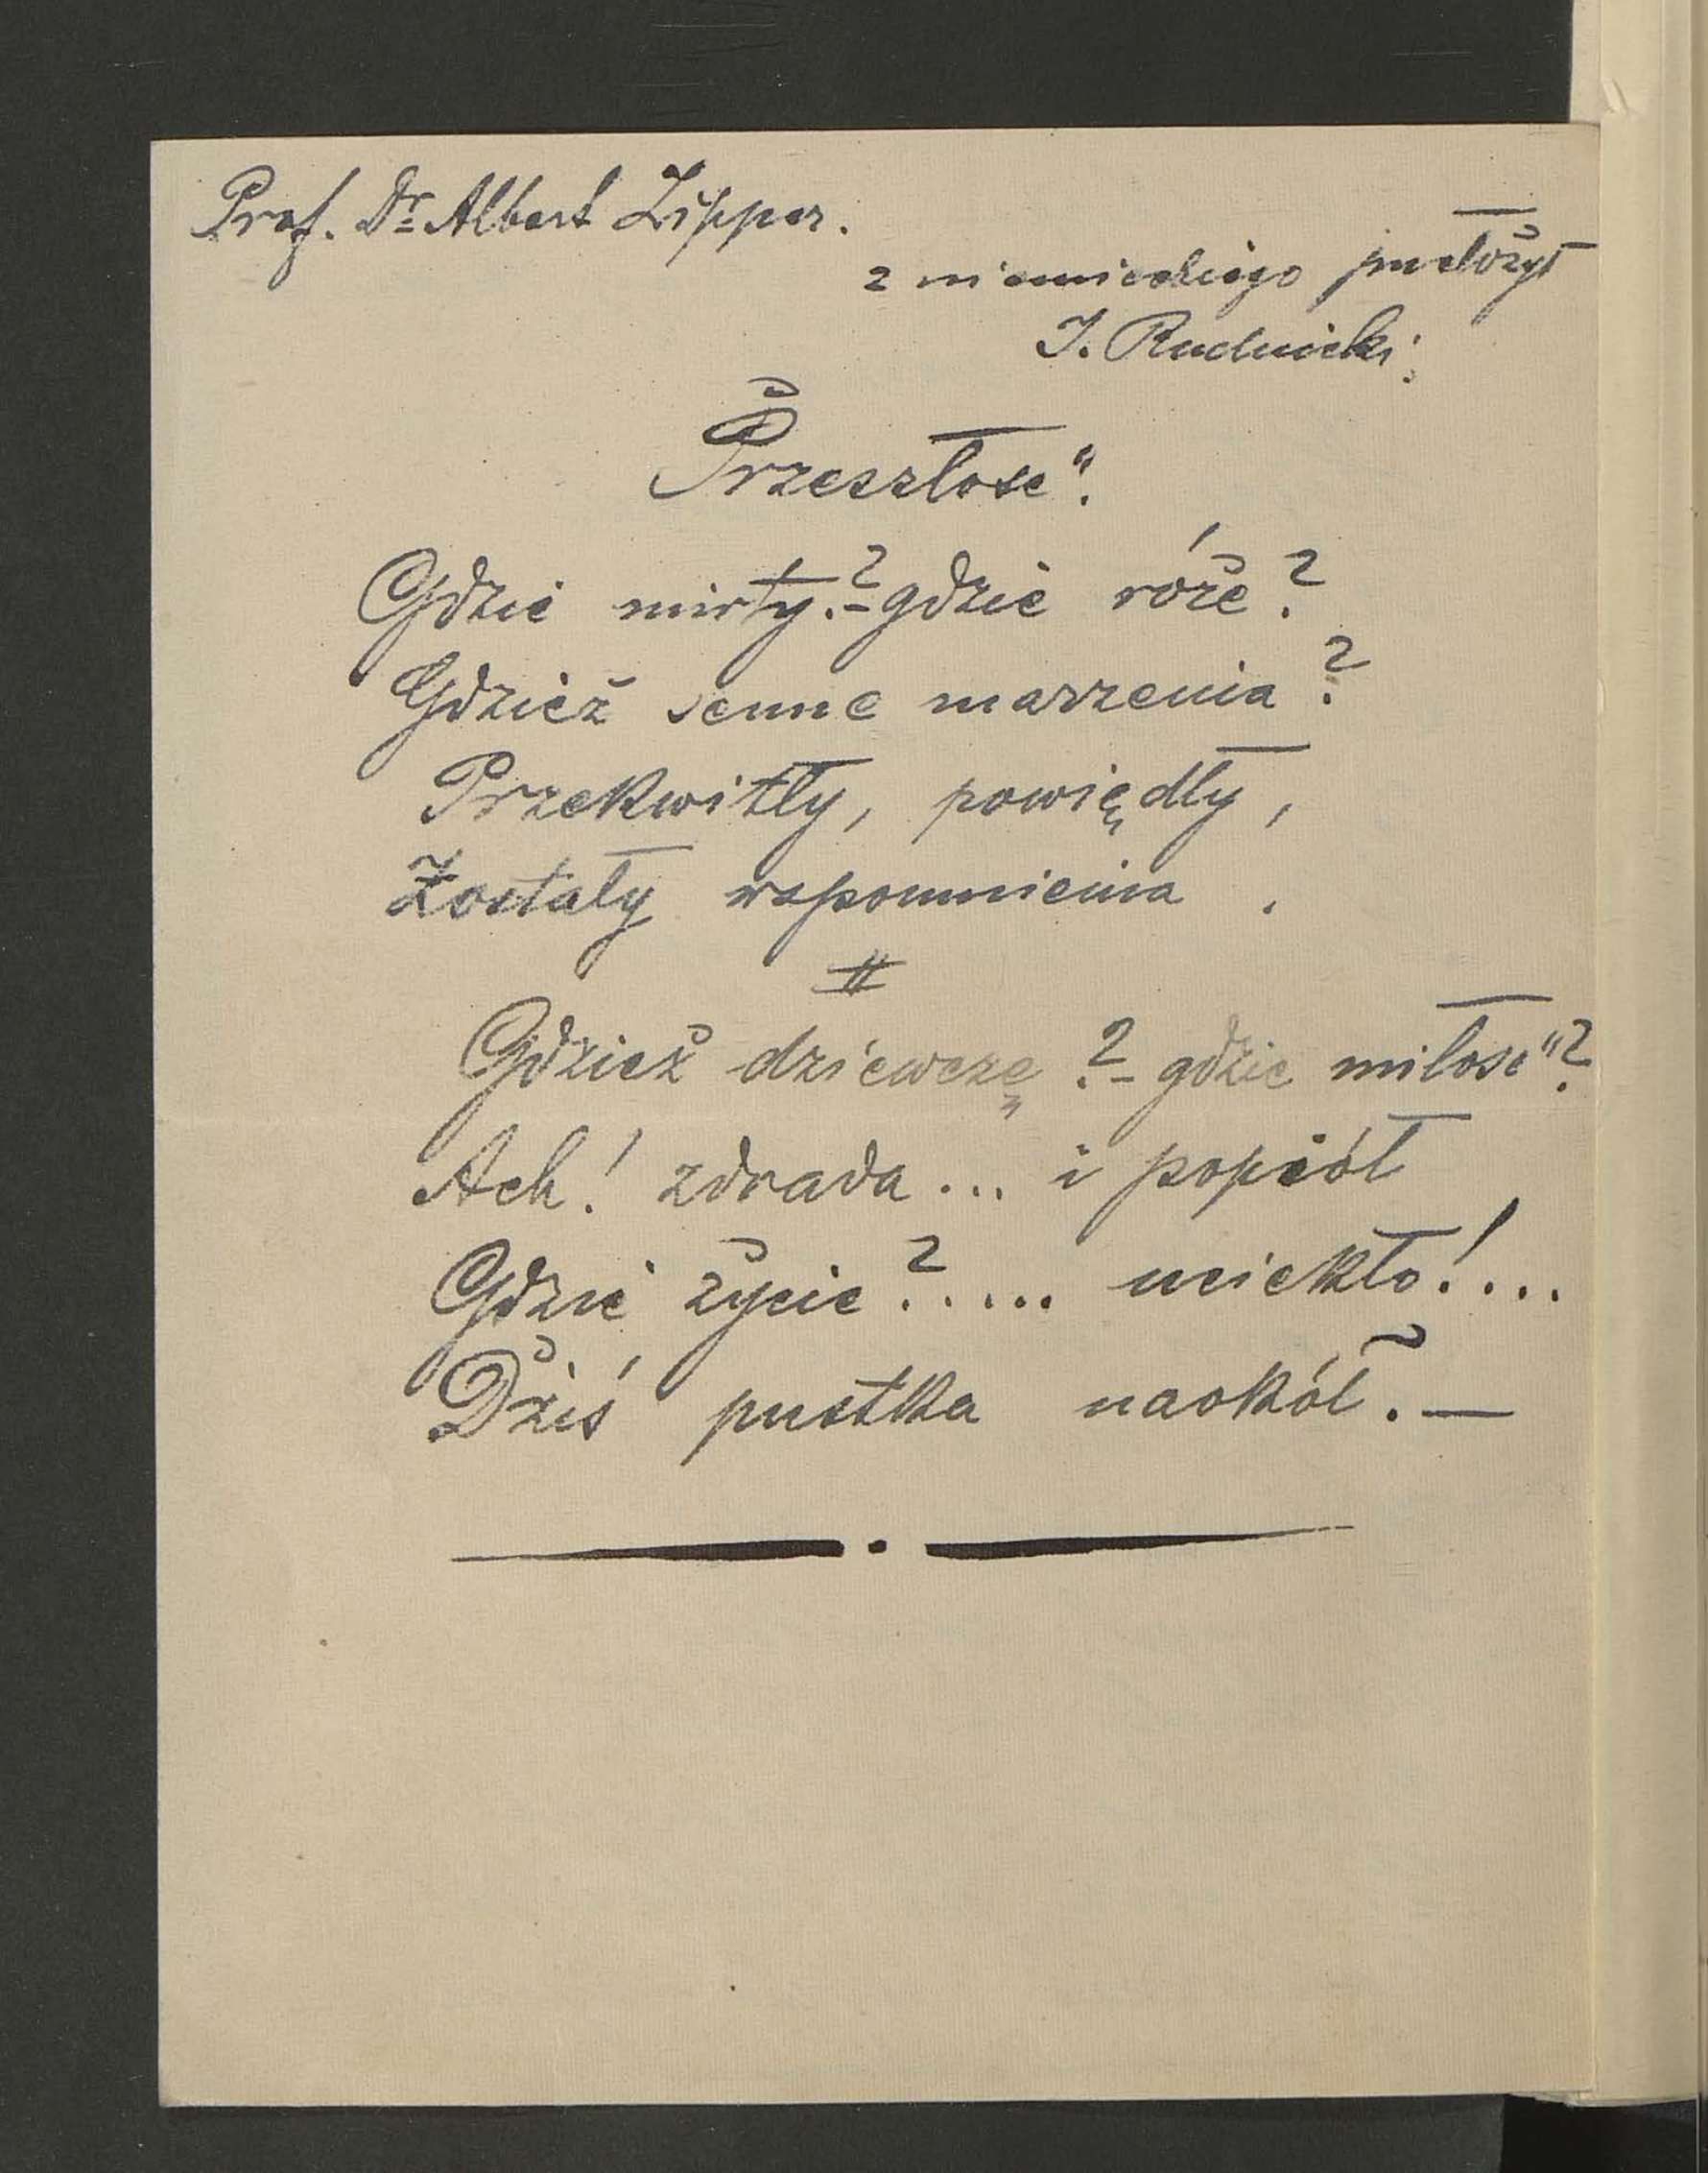 Prof. Dr Albert Zipper.
z niemieckiego przełożył
J. Rudnicki.
Przeszłość.
Gdzie mirty?-gdzie róże?
Gdzież senne marzenia?
Przekwitły, powiędły,
Zostały wspomnienia.
II
Gdzież dziewczę?- gdzie miłość?
Ach! zdrada... i popiół
Gdzie życie?..... uciekło!...
Dziś pustka naokół. —